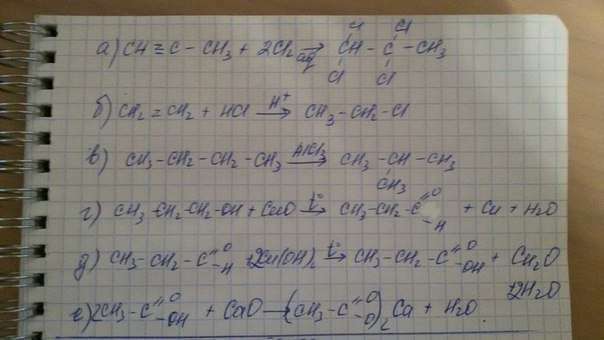 а) CH≡C-CH₃ + 2Cl₂ →(aq) CHCl(Cl)-C(Cl)(Cl)-CH₃
б) CH₂=CH₂ + HCl →(H⁺) CH₃-CH₂-Cl
в) CH₃-CH₂-CH₂-CH₃ →(AlCl₃) CH₃-CH(CH₃)-CH₃
г) CH₃-CH₂-CH₂-OH + CuO →(t°) CH₃-CH₂-C(=O)-H + Cu + H₂O
д) CH₃-CH₂-C(=O)-H + 2Cu(OH)₂ →(t°) CH₃-CH₂-C(=O)-OH + Cu₂O + 2H₂O
е) 2CH₃-C(=O)-OH + CaO → (CH₃-C(=O)-O)₂Ca + H₂O